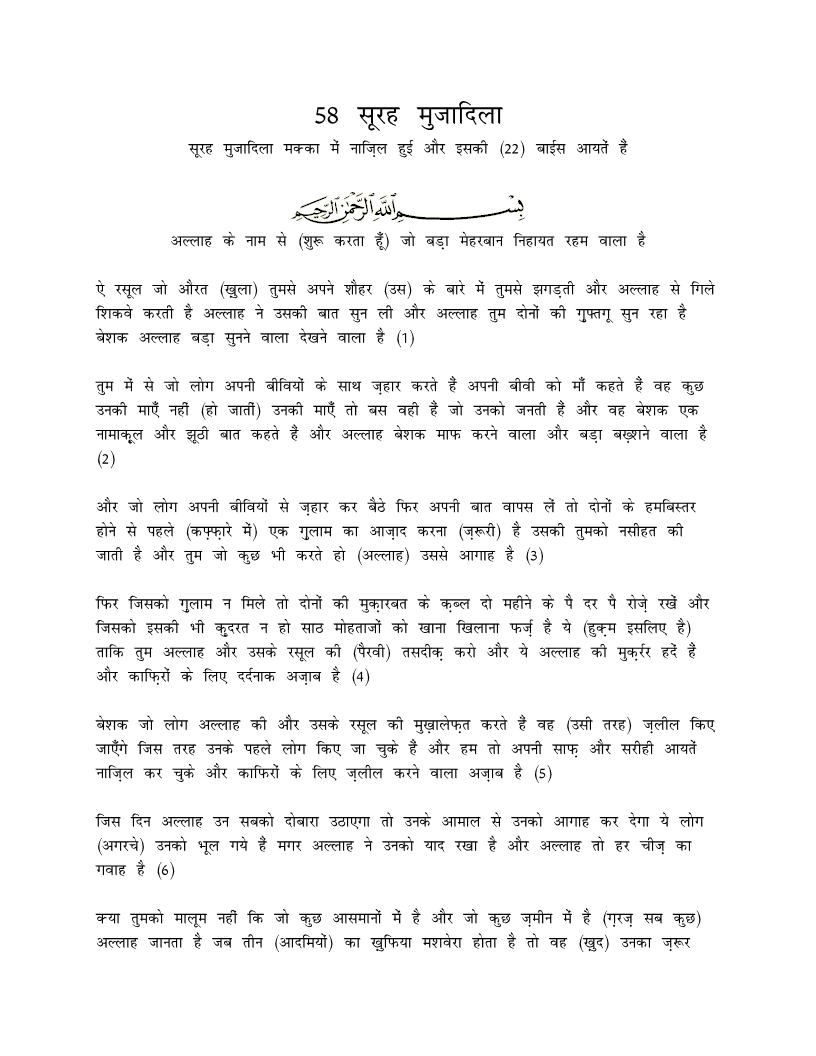 58 सूरह मुजादिला
सूरह मुजादिला मक्का में नाज़िल हुई और इसकी (22) बाईस आयतें हैं
بِسْمِ اللَّهِ الرَّحْمَٰنِ الرَّحِيمِ
अल्लाह के नाम से (शुरू करता हूँ) जो बड़ा मेहरबान निहायत रहम वाला है
ऐ रसूल जो औरत (ख़ुला) तुमसे अपने शौहर (उस) के बारे में तुमसे झगड़ती और अल्लाह से गिले
शिकवे करती है अल्लाह ने उसकी बात सुन ली और अल्लाह तुम दोनों की ग़ुफ्तगू सुन रहा है
बेशक अल्लाह बड़ा सुनने वाला देखने वाला है (1)
तुम में से जो लोग अपनी बीवियों के साथ ज़हार करते हैं अपनी बीवी को माँ कहते हैं वह कुछ
उनकी माएँ नहीं (हो जातीं) उनकी माएँ तो बस वही हैं जो उनको जनती हैं और वह बेशक एक
नामाक़ूल और झूठी बात कहते हैं और अल्लाह बेशक माफ करने वाला और बड़ा बख़्शने वाला है
(2)
और जो लोग अपनी बीवियों से ज़हार कर बैठे फिर अपनी बात वापस लें तो दोनों के हमबिस्तर
होने से पहले (कफ़्फ़ारे में) एक ग़ुलाम का आज़ाद करना (ज़रूरी) है उसकी तुमको नसीहत की
जाती है और तुम जो कुछ भी करते हो (अल्लाह) उससे आगाह है (3)
फिर जिसको ग़ुलाम न मिले तो दोनों की मुक़ारबत के क़ब्ल दो महीने के पै दर पै रोज़े रखें और
जिसको इसकी भी क़ुदरत न हो साठ मोहताजों को खाना खिलाना फर्ज़ है ये (हुक़्म इसलिए है)
ताकि तुम अल्लाह और उसके रसूल की (पैरवी) तसदीक़ करो और ये अल्लाह की मुक़र्रर हदें हैं
और काफ़िरों के लिए दर्दनाक अज़ाब है (4)
बेशक जो लोग अल्लाह की और उसके रसूल की मुख़ालेफ़त करते हैं वह (उसी तरह) ज़लील किए
जाएँगे जिस तरह उनके पहले लोग किए जा चुके हैं और हम तो अपनी साफ़ और सरीही आयतें
नाज़िल कर चुके और काफिरों के लिए ज़लील करने वाला अज़ाब है (5)
जिस दिन अल्लाह उन सबको दोबारा उठाएगा तो उनके आमाल से उनको आगाह कर देगा ये लोग
(अगरचे) उनको भूल गये हैं मगर अल्लाह ने उनको याद रखा है और अल्लाह तो हर चीज़ का
गवाह है (6)
क्या तुमको मालूम नहीं कि जो कुछ आसमानों में है और जो कुछ ज़मीन में है (ग़रज़ सब कुछ)
अल्लाह जानता है जब तीन (आदमियों) का ख़ुफिया मशवेरा होता है तो वह (ख़ुद) उनका ज़रूर